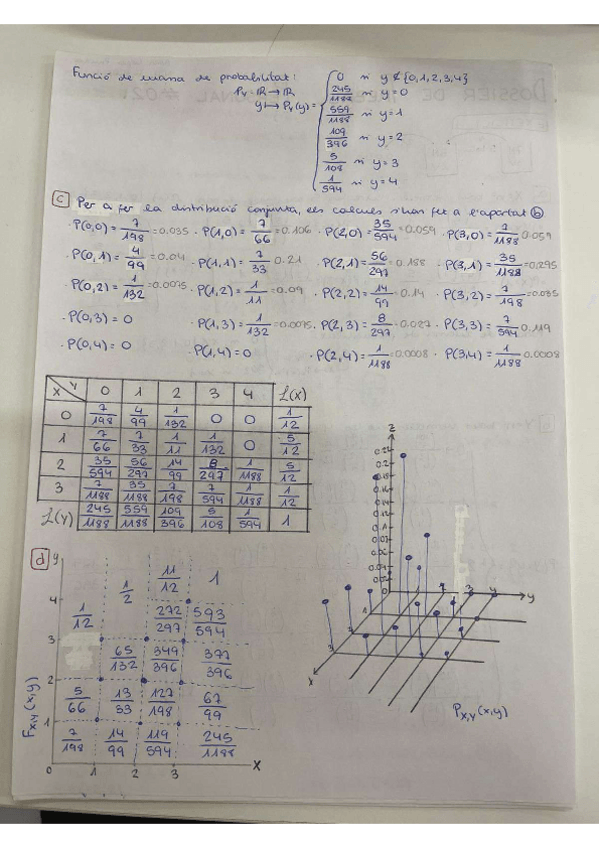 Funció de massa de probabilitat:
P_Y: ℝ → ℝ
y ↦ P_Y(y) =
0 si y ∉ {0,1,2,3,4}
245/1188 si y=0
559/1188 si y=1
109/396 si y=2
5/108 si y=3
1/594 si y=4
c) Per a fer la distribució conjunta, els càlculs s'han fet a l'apartat b)
· P(0,0)= 7/198 =0.035 · P(1,0)= 7/66 =0.106 · P(2,0)= 35/594 =0.059 · P(3,0)= 7/1188 0.059
· P(0,1)= 4/99 =0.04 · P(1,1)= 7/33 0.21 · P(2,1)= 56/297 =0.188 · P(3,1)= 35/1188 =0.295
· P(0,2)= 1/132 =0.0075 · P(1,2)= 1/11 =0.09 · P(2,2)= 14/99 =0.14 · P(3,2)= 7/198 =0.035
· P(0,3)= 0 · P(1,3)= 1/132 =0.0075 · P(2,3)= 8/297 =0.027 · P(3,3)= 7/594 0.119
· P(0,4)= 0 · P(1,4)= 0 · P(2,4)= 1/1188 =0.0008 · P(3,4)= 1/1188 0.0008
X Y 0 1 2 3 4 L(x)
0 7/198 4/99 1/132 0 0 1/12
1 7/66 7/33 1/11 1/132 0 5/12
2 35/594 56/297 14/99 8/297 1/1188 5/12
3 7/1188 35/1188 7/198 7/594 1/1188 1/12
L(Y) 245/1188 559/1188 109/396 5/108 1/594 1
d)
y
1/12 1/2 11/12 1
4
272/297 593/594
3
65/132 349/396 377/396
2
5/66 13/33 127/198 67/99
1
7/198 14/99 119/594 245/1188
0 1 2 3 x
F_X,Y(x,y)
z
y
x
P_X,Y(x,y)